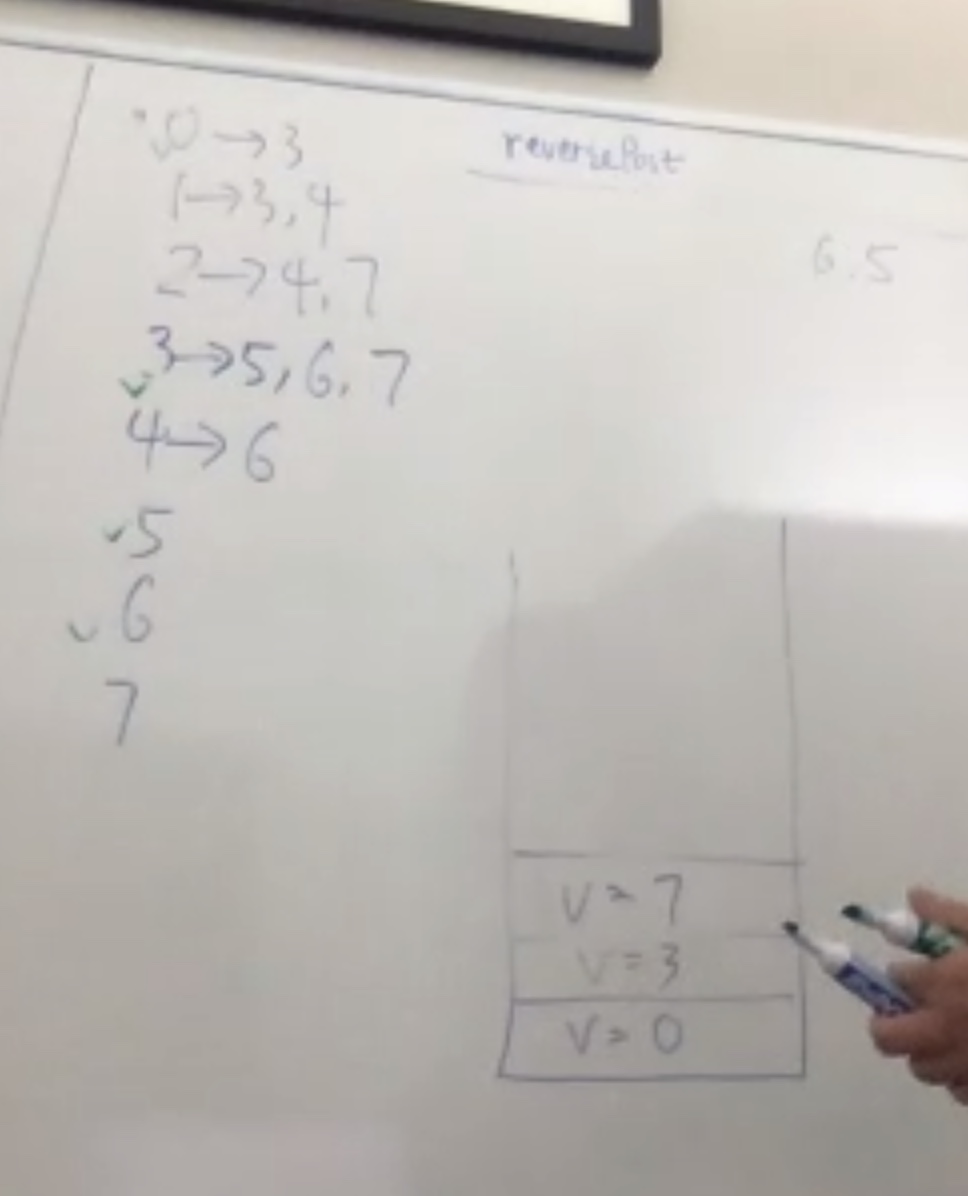 0→3
1→3,4
2→4,7
3→5,6,7
4→6
5
6
7
reversePost
6.5
V=7
V=3
V=0